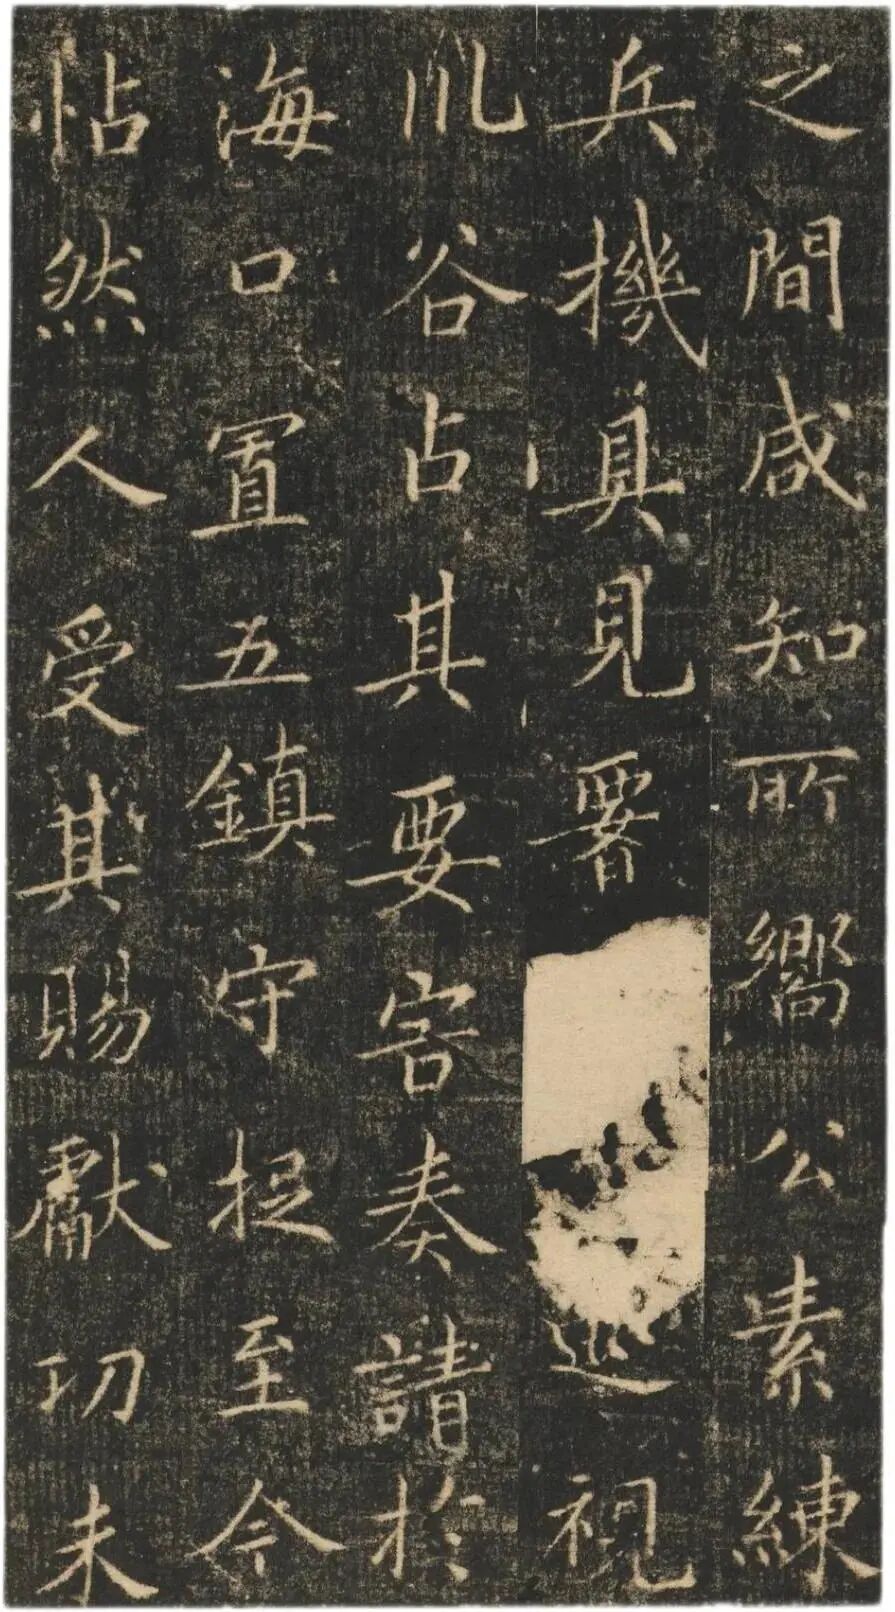 之間咸知所嚮公素練
兵機具見畧巡視
川谷占其要害奏請於
海口置五鎮守捉至今
怗然人受其賜獻功未